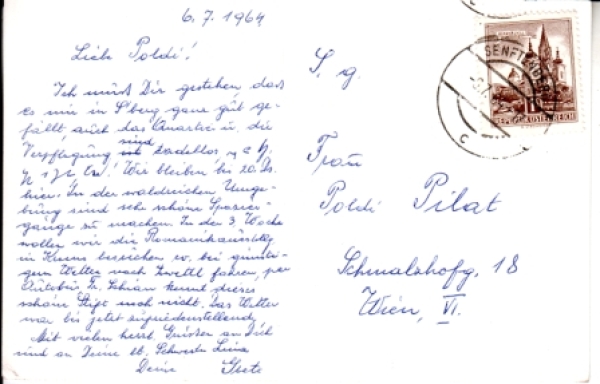 6.7.1964
Liebe Poldi!
Ich muß Dir gestehen, daß
es mir in S'berg ganz gut ge-
fällt, auch das Quartier u. die
Verpflegung sind tadellos,
Wir bleiben bis 20. ds.
hier. In der waldreichen Umge-
bung sind sehr schöne Spazier-
gänge zu machen. In der 3. Woche
wollen wir die Romanikausstllg.
in Krems besuchen ev. bei günsti-
gem Wetter nach Zwettl fahren, per
Autobus, Fr. kennt dieses
schöne Stift noch nicht. Das Wetter
war bis jetzt zufriedenstellend.
Mit vielen herzl. Grüßen an Dich
und an Deine lb. Schwester
Deine Grete
S. g.
Frau
Poldi Pilat
Schmalzhofg. 18
Wien, VI.
SENFTENBERG
REPUBLIK ÖSTERREICH